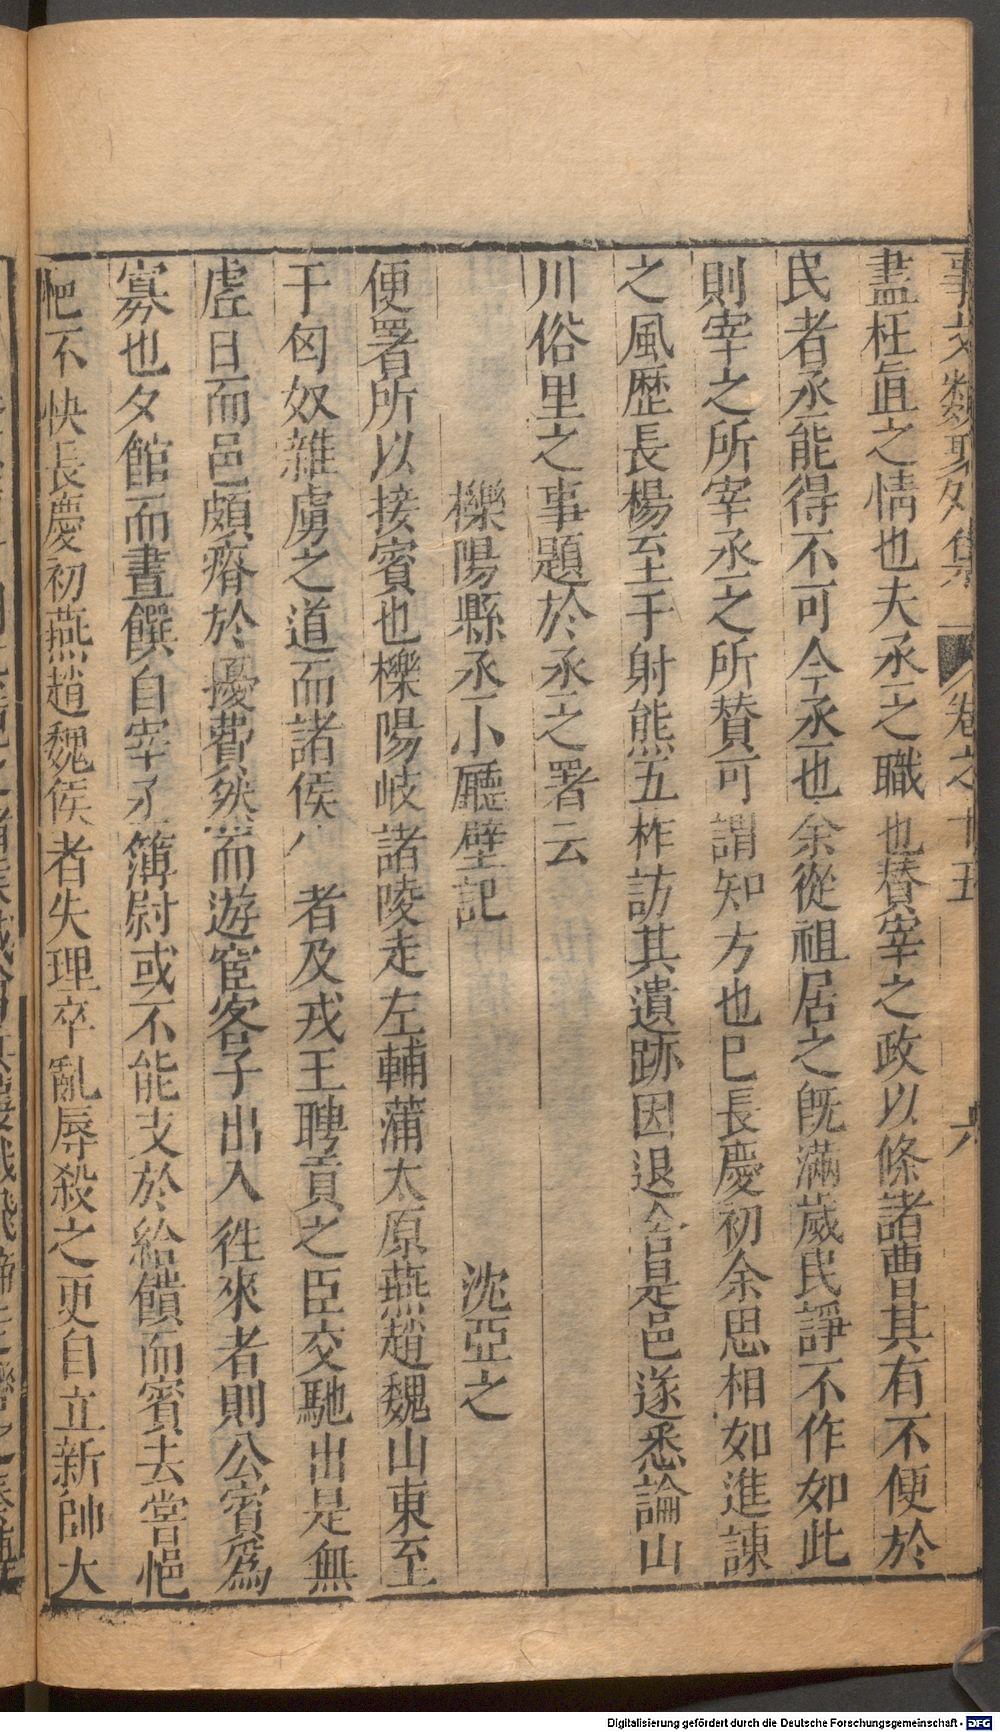 事文類聚外集 卷之十五 六
盡枉直之情也夫丞之職也贊宰之政以條諸曹其有不便於
民者丞能得不可今丞也余從祖居之既滿歲民諍不作如此
則宰之所宰丞之所贊可謂知方也巳長慶初余思相如進諫
之風歷長楊至于射熊五柞訪其遺跡因退舍是邑遂悉論山
川俗里之事題於丞之署云
櫟陽縣丞小廳壁記 沈亞之
便署所以接賓也櫟陽岐諸陵走左輔蒲太原燕趙魏山東至
于匈奴雜虜之道而諸侯 者及戎王聘貢之臣交馳出是無
虛日而邑頗瘠於優費然而遊宦客子出入徃來者則公賓爲
寡也夕館而晝饌自宰丞簿尉或不能支於給饋而賓去嘗悒
悒不快長慶初燕趙魏侯者失理卒亂辱殺之更自立新帥大
Digitalisierung gefördert durch die Deutsche Forschungsgemeinschaft - DFG